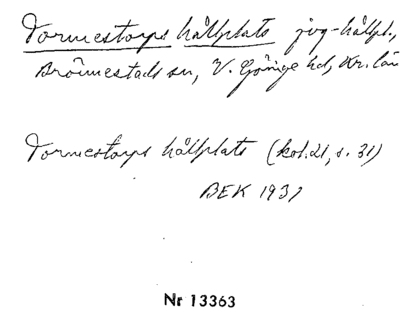 Tormestorps hållplats jvg-hållpl.,
Brönnestads sn, V. Göinge hd, Kr. län
Tormestorps hållplats (kol. 21, s. 31)
BEK 1937
Nr 13363